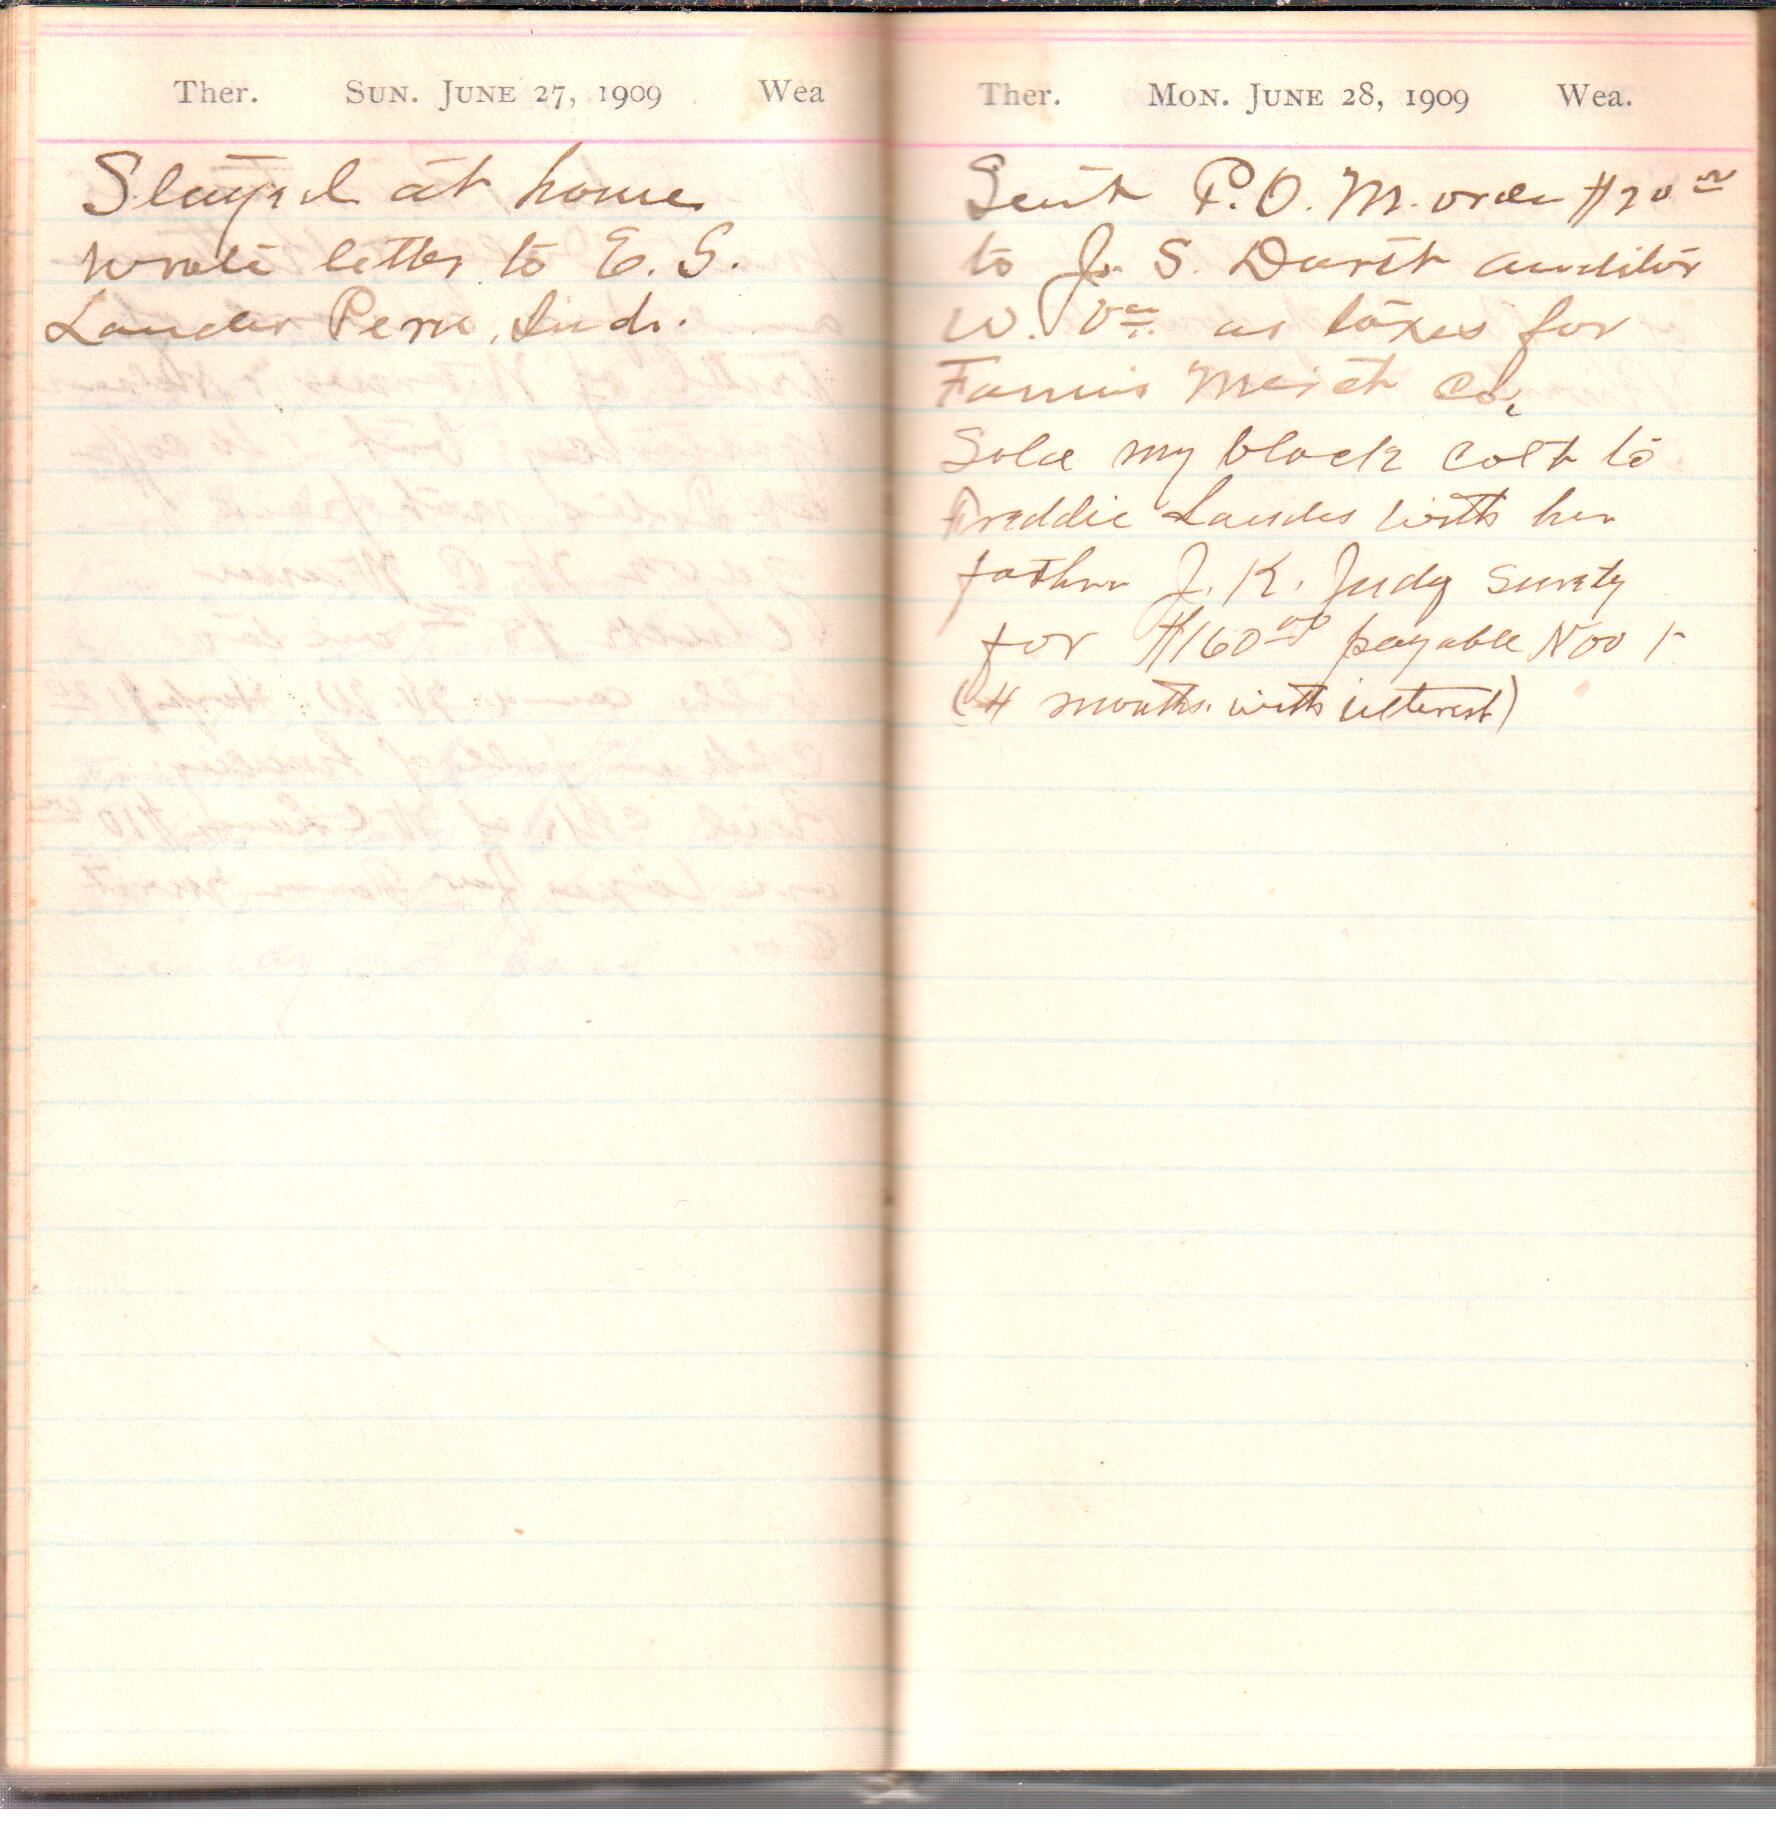 Ther. SUN. JUNE 27, 1909 Wea
Stayed at home
wrote letter to E. S.
Landes Peru, Ind.
Ther. MON. JUNE 28, 1909 Wea.
Sent P. O. M. order
to J. S. Darst auditor
W. Va. as taxes for
Farmers Merct Co.
Sold my black colt to
Freddie Landes with her
father J. K. Judy surety
for $160 00 payable Nov 1
(4 months. with interest)